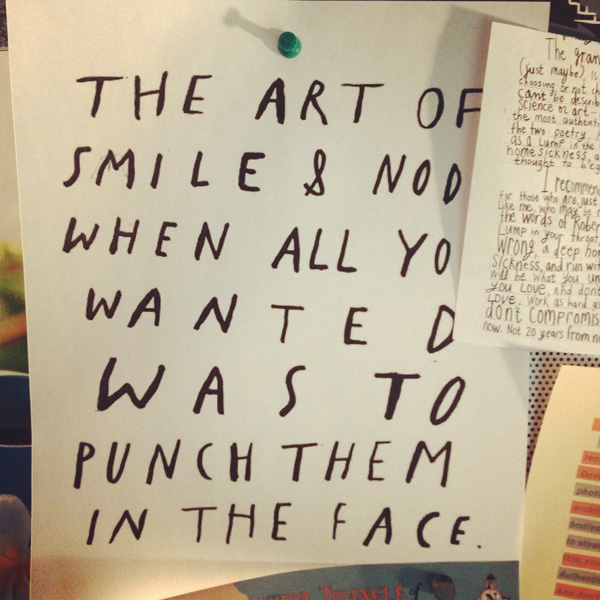 THE ART OF
SMILE & NOD
WHEN ALL YO
WANTED
WAS TO
PUNCH THEM
IN THE FACE.
The gran
(just maybe) is
choosing or not ch
cant be describ
science or art-
the most authent
the two poetry.
as a Lump in the
homesickness, a
thought to beg
I recommen
for those who are just
like me, who may be
the words of Rober
Lump in your throat,
wrong, a deep ho
sickness, and run wit
will be what you un
you Love, and dont
Love. Work as hard as
dont compromis
now. Not 20 years from no
TRIANGLE